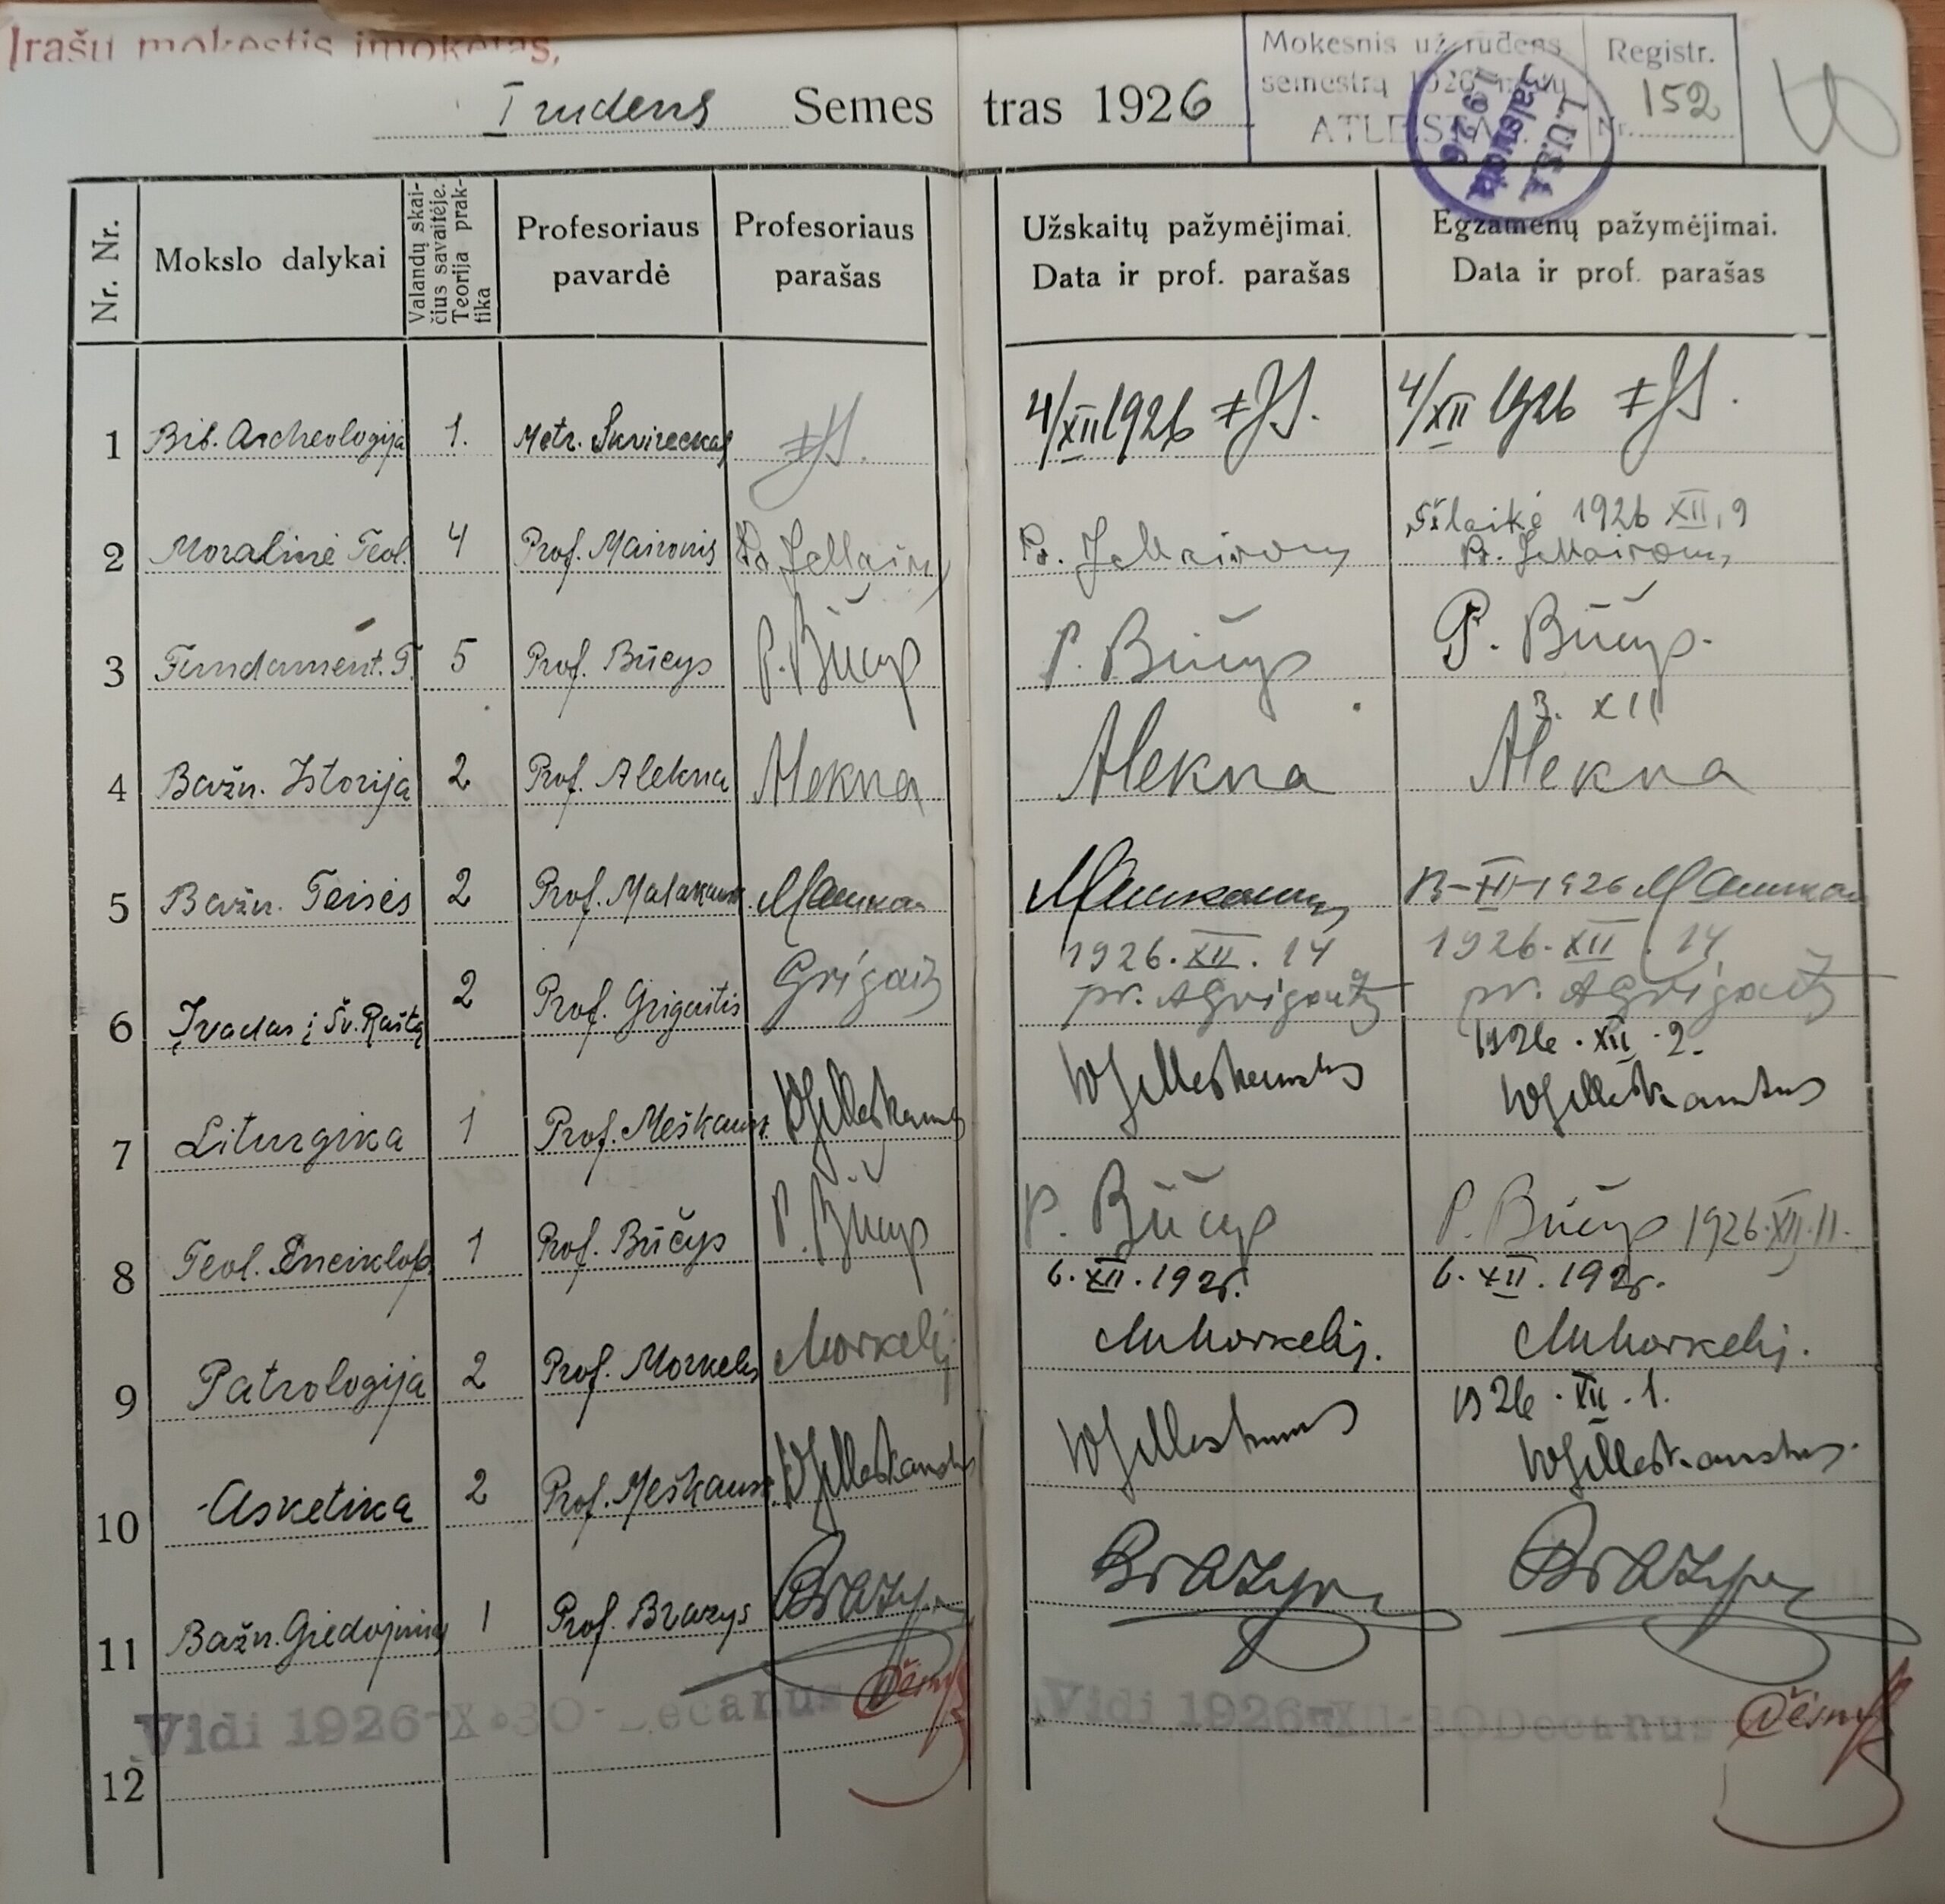 Įrašų mokestis įmokėtas,
I rudens Semestras 1926
Mokesnis už rudens
semestrą 1926 metų
ATLEISTA
Registr.
Nr. 152
L.U.S.A.
Valsyboto
1926
Nr. Nr.
Mokslo dalykai
Valandų skai-
čius savaitėje.
Teorija prak-
tika
Profesoriaus
pavardė
Profesoriaus
parašas
Užskaitų pažymėjimai.
Data ir prof. parašas
Egzamenų pažymėjimai.
Data ir prof. parašas
1 Bib. Archeologija 1. Metr. Skvireckas 4/XII 1926 4/XII 1926
2 Moralinė Teol. 4 Prof. Maironis Pr. J. Mairon Pr. J. Maironis Išlaikė 1926 XII, 9
Pr. J. Maironis
3 Fundament. T. 5 Prof. Būčys P. Būčys P. Būčys P. Būčys.
3. XII
4 Bažn. Istorija 2 Prof. Alekna Alekna Alekna Alekna
5 Bažn. Teisės 2 Prof. Malakausk. 13-XII-1926
1926. XII. 14 1926. XII. 14
6 Įvadas į Šv. Raštą 2 Prof. Grigaitis Grigait pr. A Grigaitis pr. A Grigaitis
1926. XII. 2.
7 Liturgika 1 Prof. Meškausk. Meškauskas Meškauskas Meškauskas
8 Teol. Enciklop. 1 Prof. Būčys P. Būčys P. Būčys P. Būčys 1926.XII.11.
6. XII. 1926. 6. XII. 1926.
9 Patrologija 2 Prof. Morkelis Morkelis Morkelis. Morkelis.
1926. XII. 1.
10 Asketika 2 Prof. Meškausk. Meškauskas Meškauskas Meškauskas.
11 Bažn. Giedojimas 1 Prof. Brazys Brazys Brazys Brazys
Vidi 1926-X-30-Decanus Česnys Vidi 1926-XII-30 Decanus Česnys
12